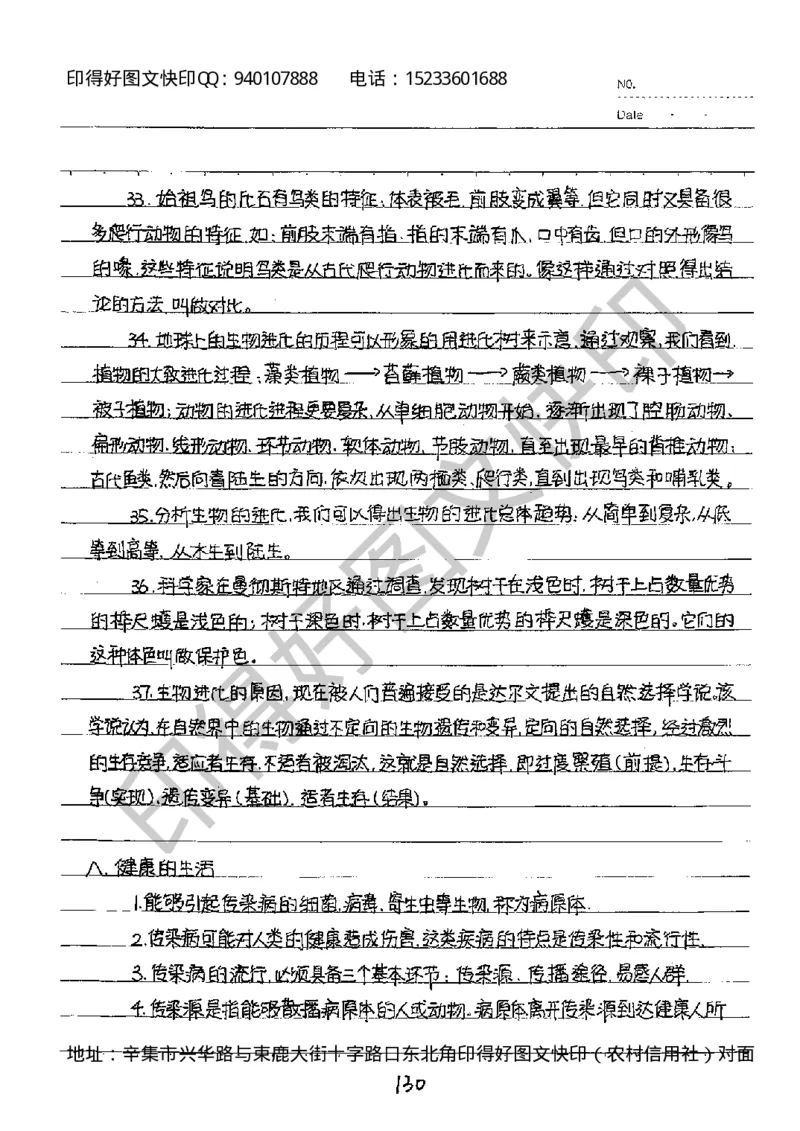 印得好图文快印QQ：940107888 电话：15233601688
NO.
Date - -
33. 始祖鸟的化石有鸟类的特征：体表被毛，前肢变成翼等，但它同时又具备很
多爬行动物的特征，如：前肢末端有指，指的末端有爪，口中有齿，但口的外形像鸟
的喙，这些特征说明鸟类是从古代爬行动物进化而来的。像这样通过对照得出结
论的方法，叫做对比。
34. 地球上的生物进化的历程可以形象的用进化树来示意，通过观察，我们看到，
植物的大致进化过程：藻类植物→苔藓植物→蕨类植物→裸子植物→
被子植物；动物的进化进程更要复杂，从单细胞动物开始，逐渐出现了腔肠动物、
扁形动物、线形动物、环节动物、软体动物、节肢动物，直至出现最早的脊椎动物：
古代鱼类，然后向着陆生的方向，依次出现两栖类、爬行类，直到出现鸟类和哺乳类。
35. 分析生物的进化，我们可以得出生物的进化总体趋势：从简单到复杂，从低
等到高等，从水生到陆生。
36. 科学家在曼彻斯特地区通过调查，发现树干在浅色时，树干上占数量优势
的桦尺蠖是浅色的；树干深色时，树干上占数量优势的桦尺蠖是深色的。它们的
这种体色叫做保护色。
37. 生物进化的原因，现在被人们普遍接受的是达尔文提出的自然选择学说。该
学说认为，在自然界中的生物通过不定向的生物遗传和变异，定向的自然选择，经过激烈
的生存竞争，适应者生存，不适者被淘汰，这就是自然选择，即过度繁殖(前提)，生存斗
争(实现)，遗传变异(基础)，适者生存(结果)。
八、健康的生活
1. 能够引起传染病的细菌，病毒，寄生虫等生物，称为病原体.
2. 传染病可能对人类的健康造成伤害，这类疾病的特点是传染性和流行性.
3. 传染病的流行，必须具备三个基本环节：传染源、传播途径，易感人群.
4. 传染源是指能够散播病原体的人或动物。病原体离开传染源到达健康人所
地址：辛集市兴华路与束鹿大街十字路口东北角印得好图文快印（农村信用社）对面
130
印得好图文快印